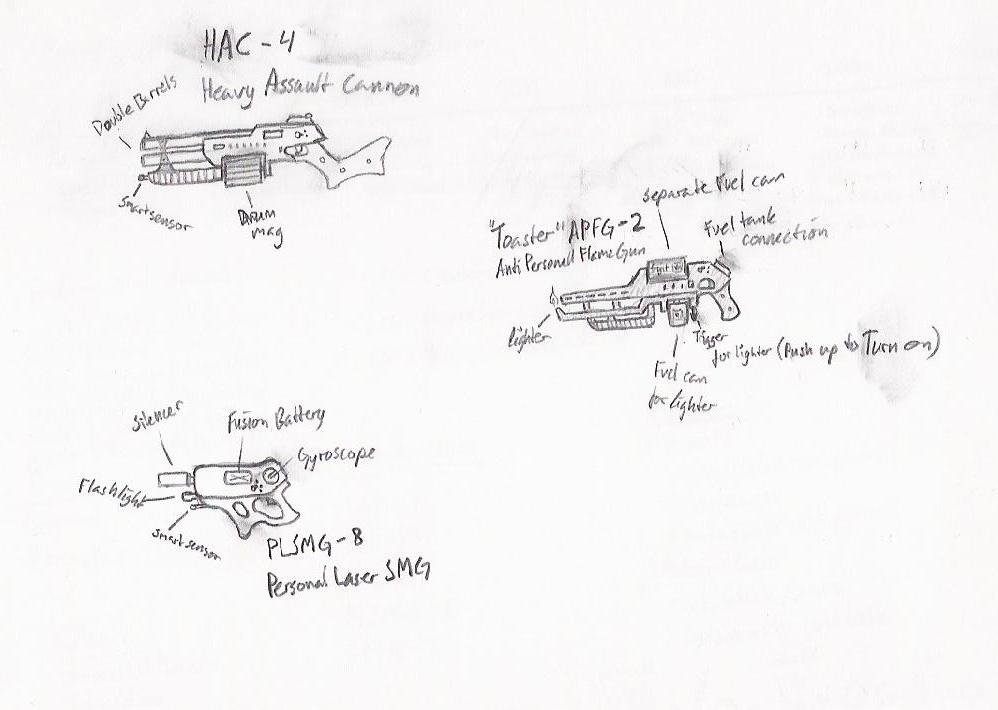 HAC-4
Heavy Assault Cannon
Double Barrels
Smartsensor
Drum
mag
separate Fuel can
"Toaster" APFG-2
Anti Personel Flame Gun
Fuel tank
connection
lighter
Trigger
for lighter (Push up to Turn on)
Fuel can
for lighter
Silencer
Fusion Battery
Gyroscope
Flashlight
smartsensor
PLSMG-8
Personal Laser SMG